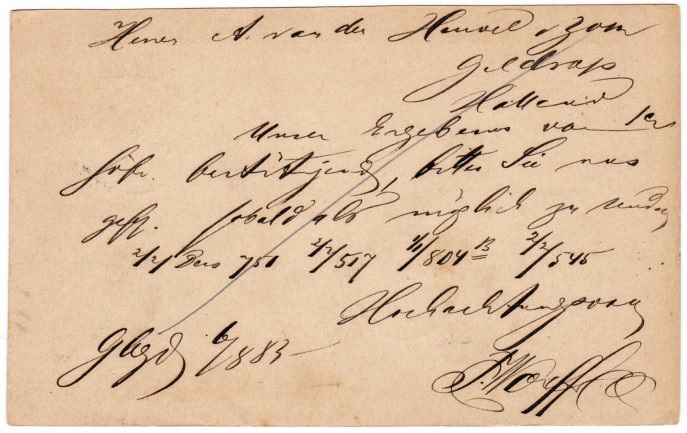 Herren A. van den Heuvel & Zoon
Geldrop
Holland
Unser Ergebenes vom 1er
höfl. bestätigend, bitten Sie uns
gefl. sobald als möglich zu senden
2/2/ Dess 751 2/2/517 1/1/804 B 2/2/545
Hochachtungsvoll
6/883